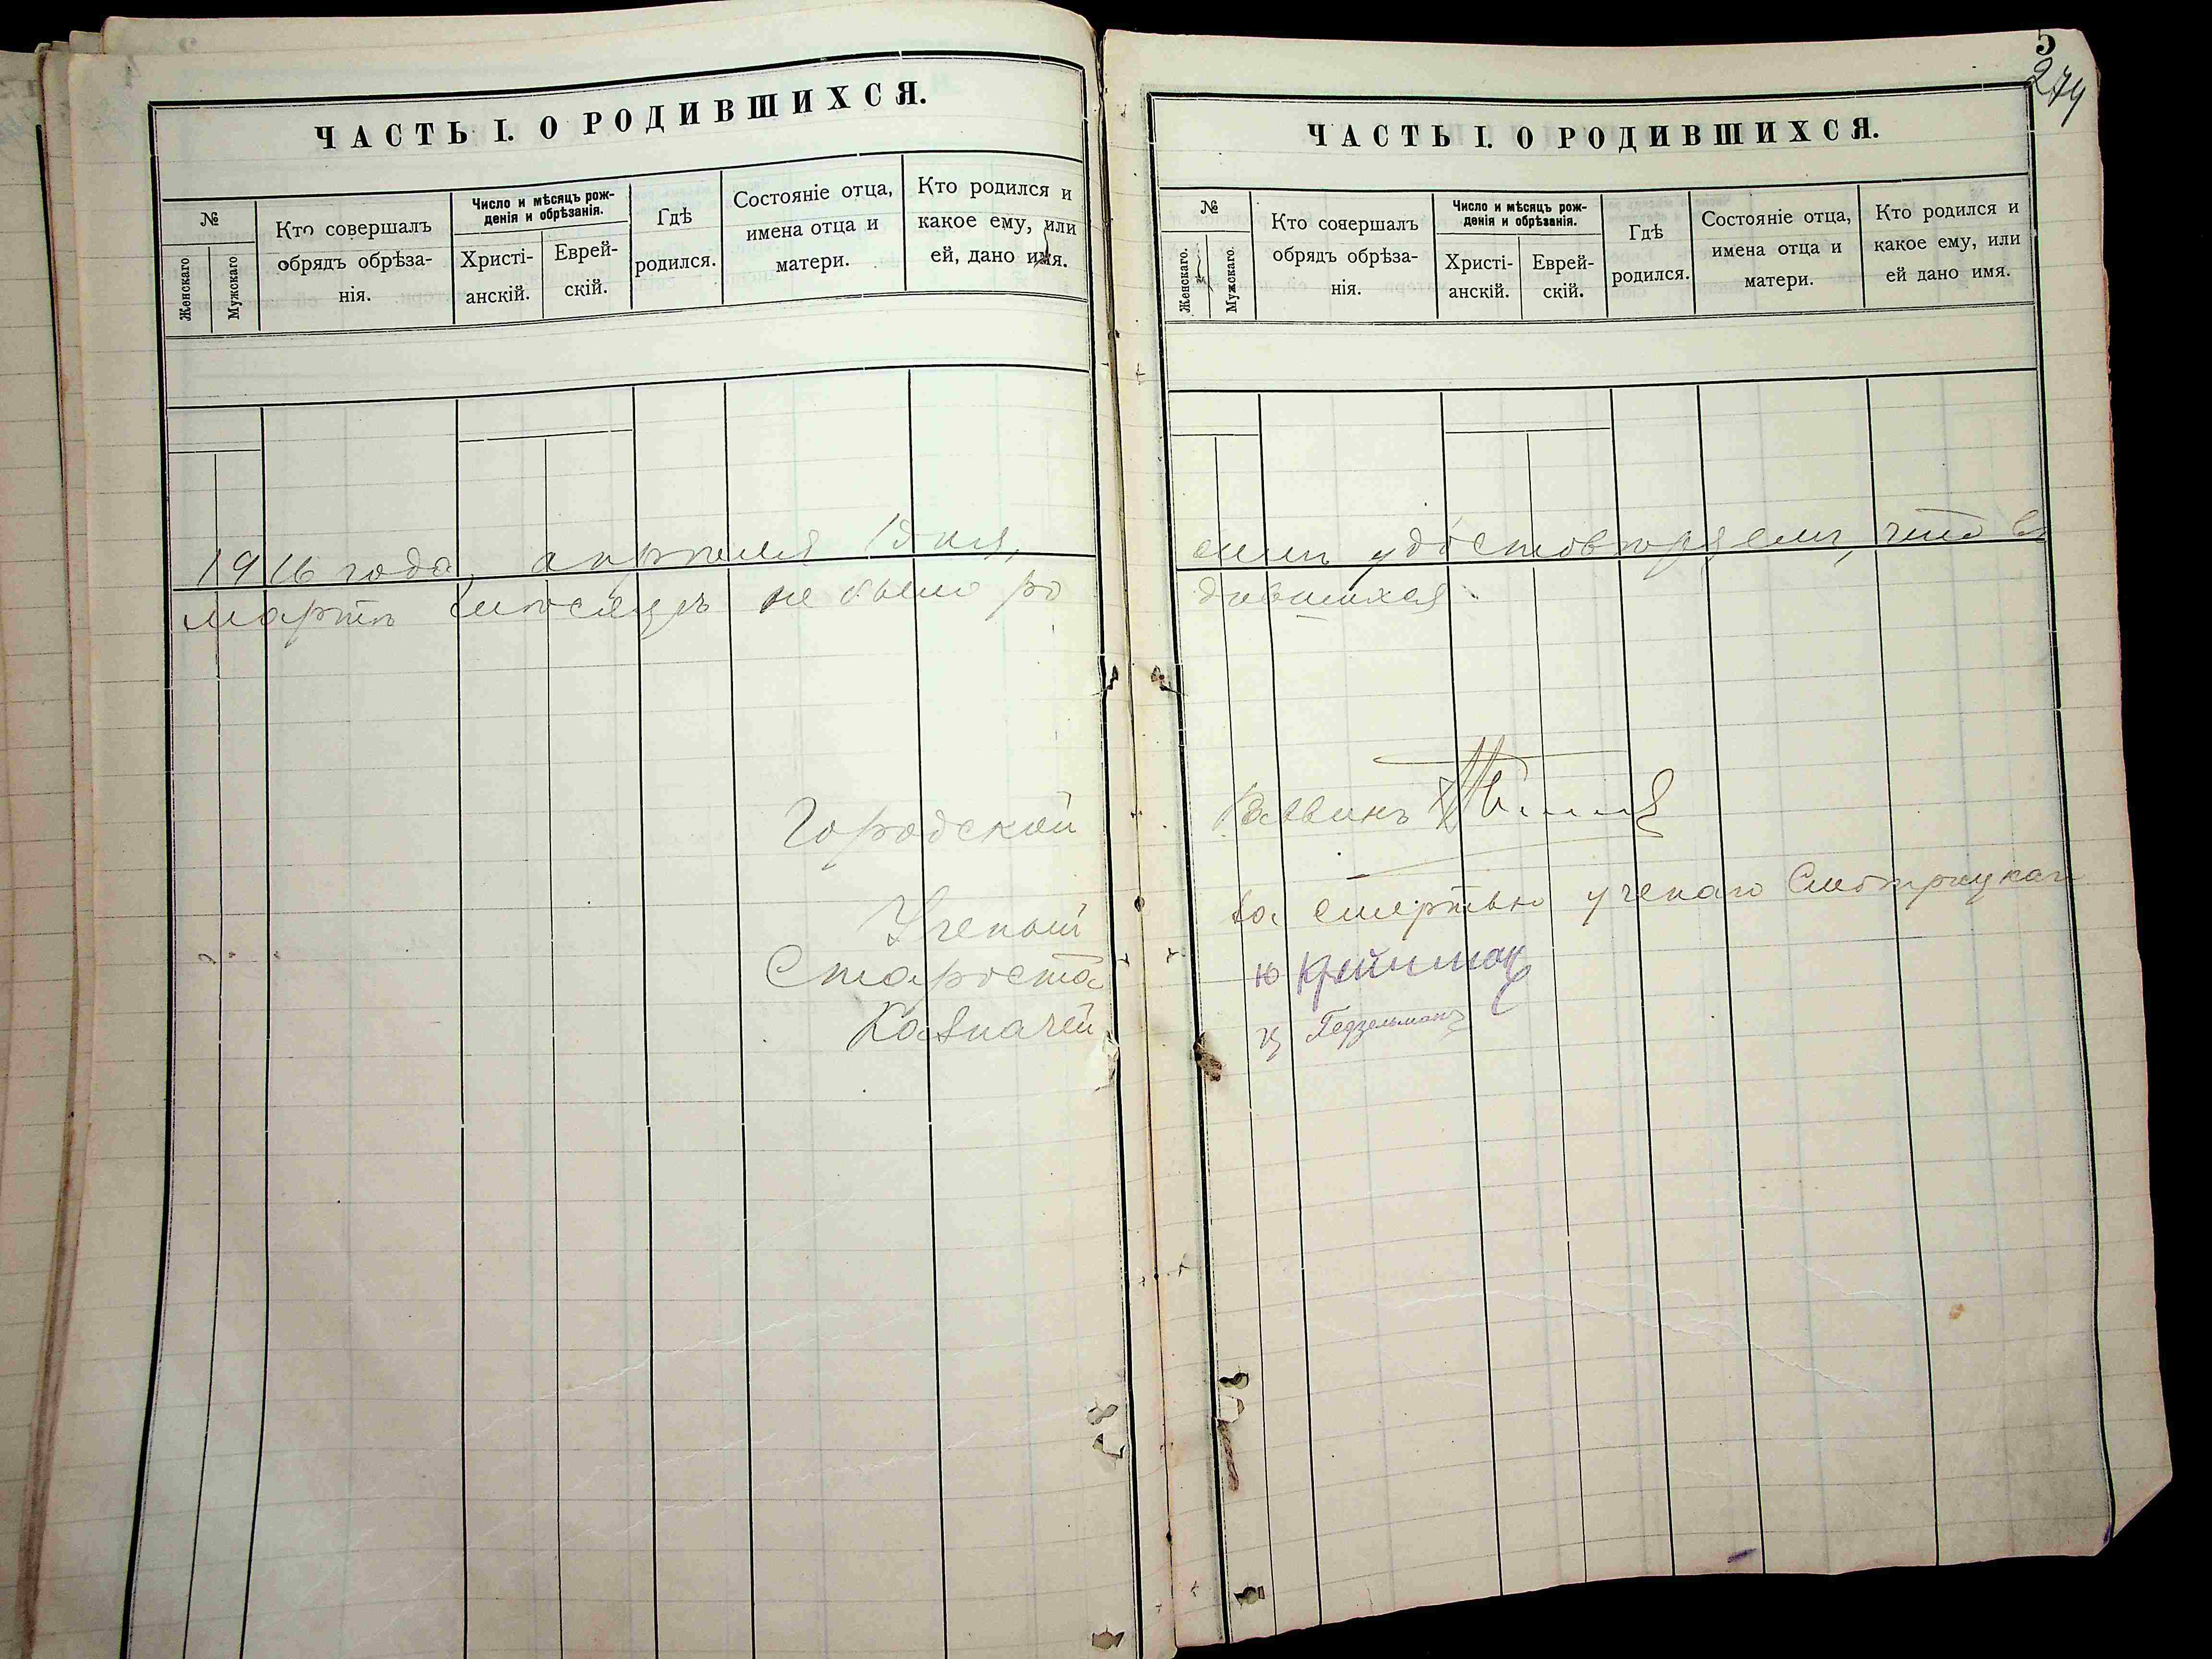 ЧАСТЬ I. О РОДИВШИХСЯ.
№
Женскаго
Мужскаго
Кто совершалъ
обрядъ обрѣза-
нія.
Число и мѣсяцъ рож-
денія и обрѣзанія.
Христі-
анскій.
Еврей-
скій.
Гдѣ
родился.
Состояніе отца,
имена отца и
матери.
Кто родился и
какое ему, или
ей, дано имя.
1916 года, апрѣля 1 дня,
мартѣ мѣсяцѣ не было ро
Городской
Ученый
Староста
Казначей
5
274
ЧАСТЬ I. О РОДИВШИХСЯ.
№
Женскаго.
Мужскаго.
Кто совершалъ
обрядъ обрѣза-
нія.
Число и мѣсяцъ рож-
денія и обрѣзанія.
Христі-
анскій.
Еврей-
скій.
Гдѣ
родился.
Состояніе отца,
имена отца и
матери.
Кто родился и
какое ему, или
ей дано имя.
симъ удостовѣряемъ, что въ
дившихся
Раввинъ
За смертью ученаго Смотрицкаго
Ю Крейчман
Гедзельманъ